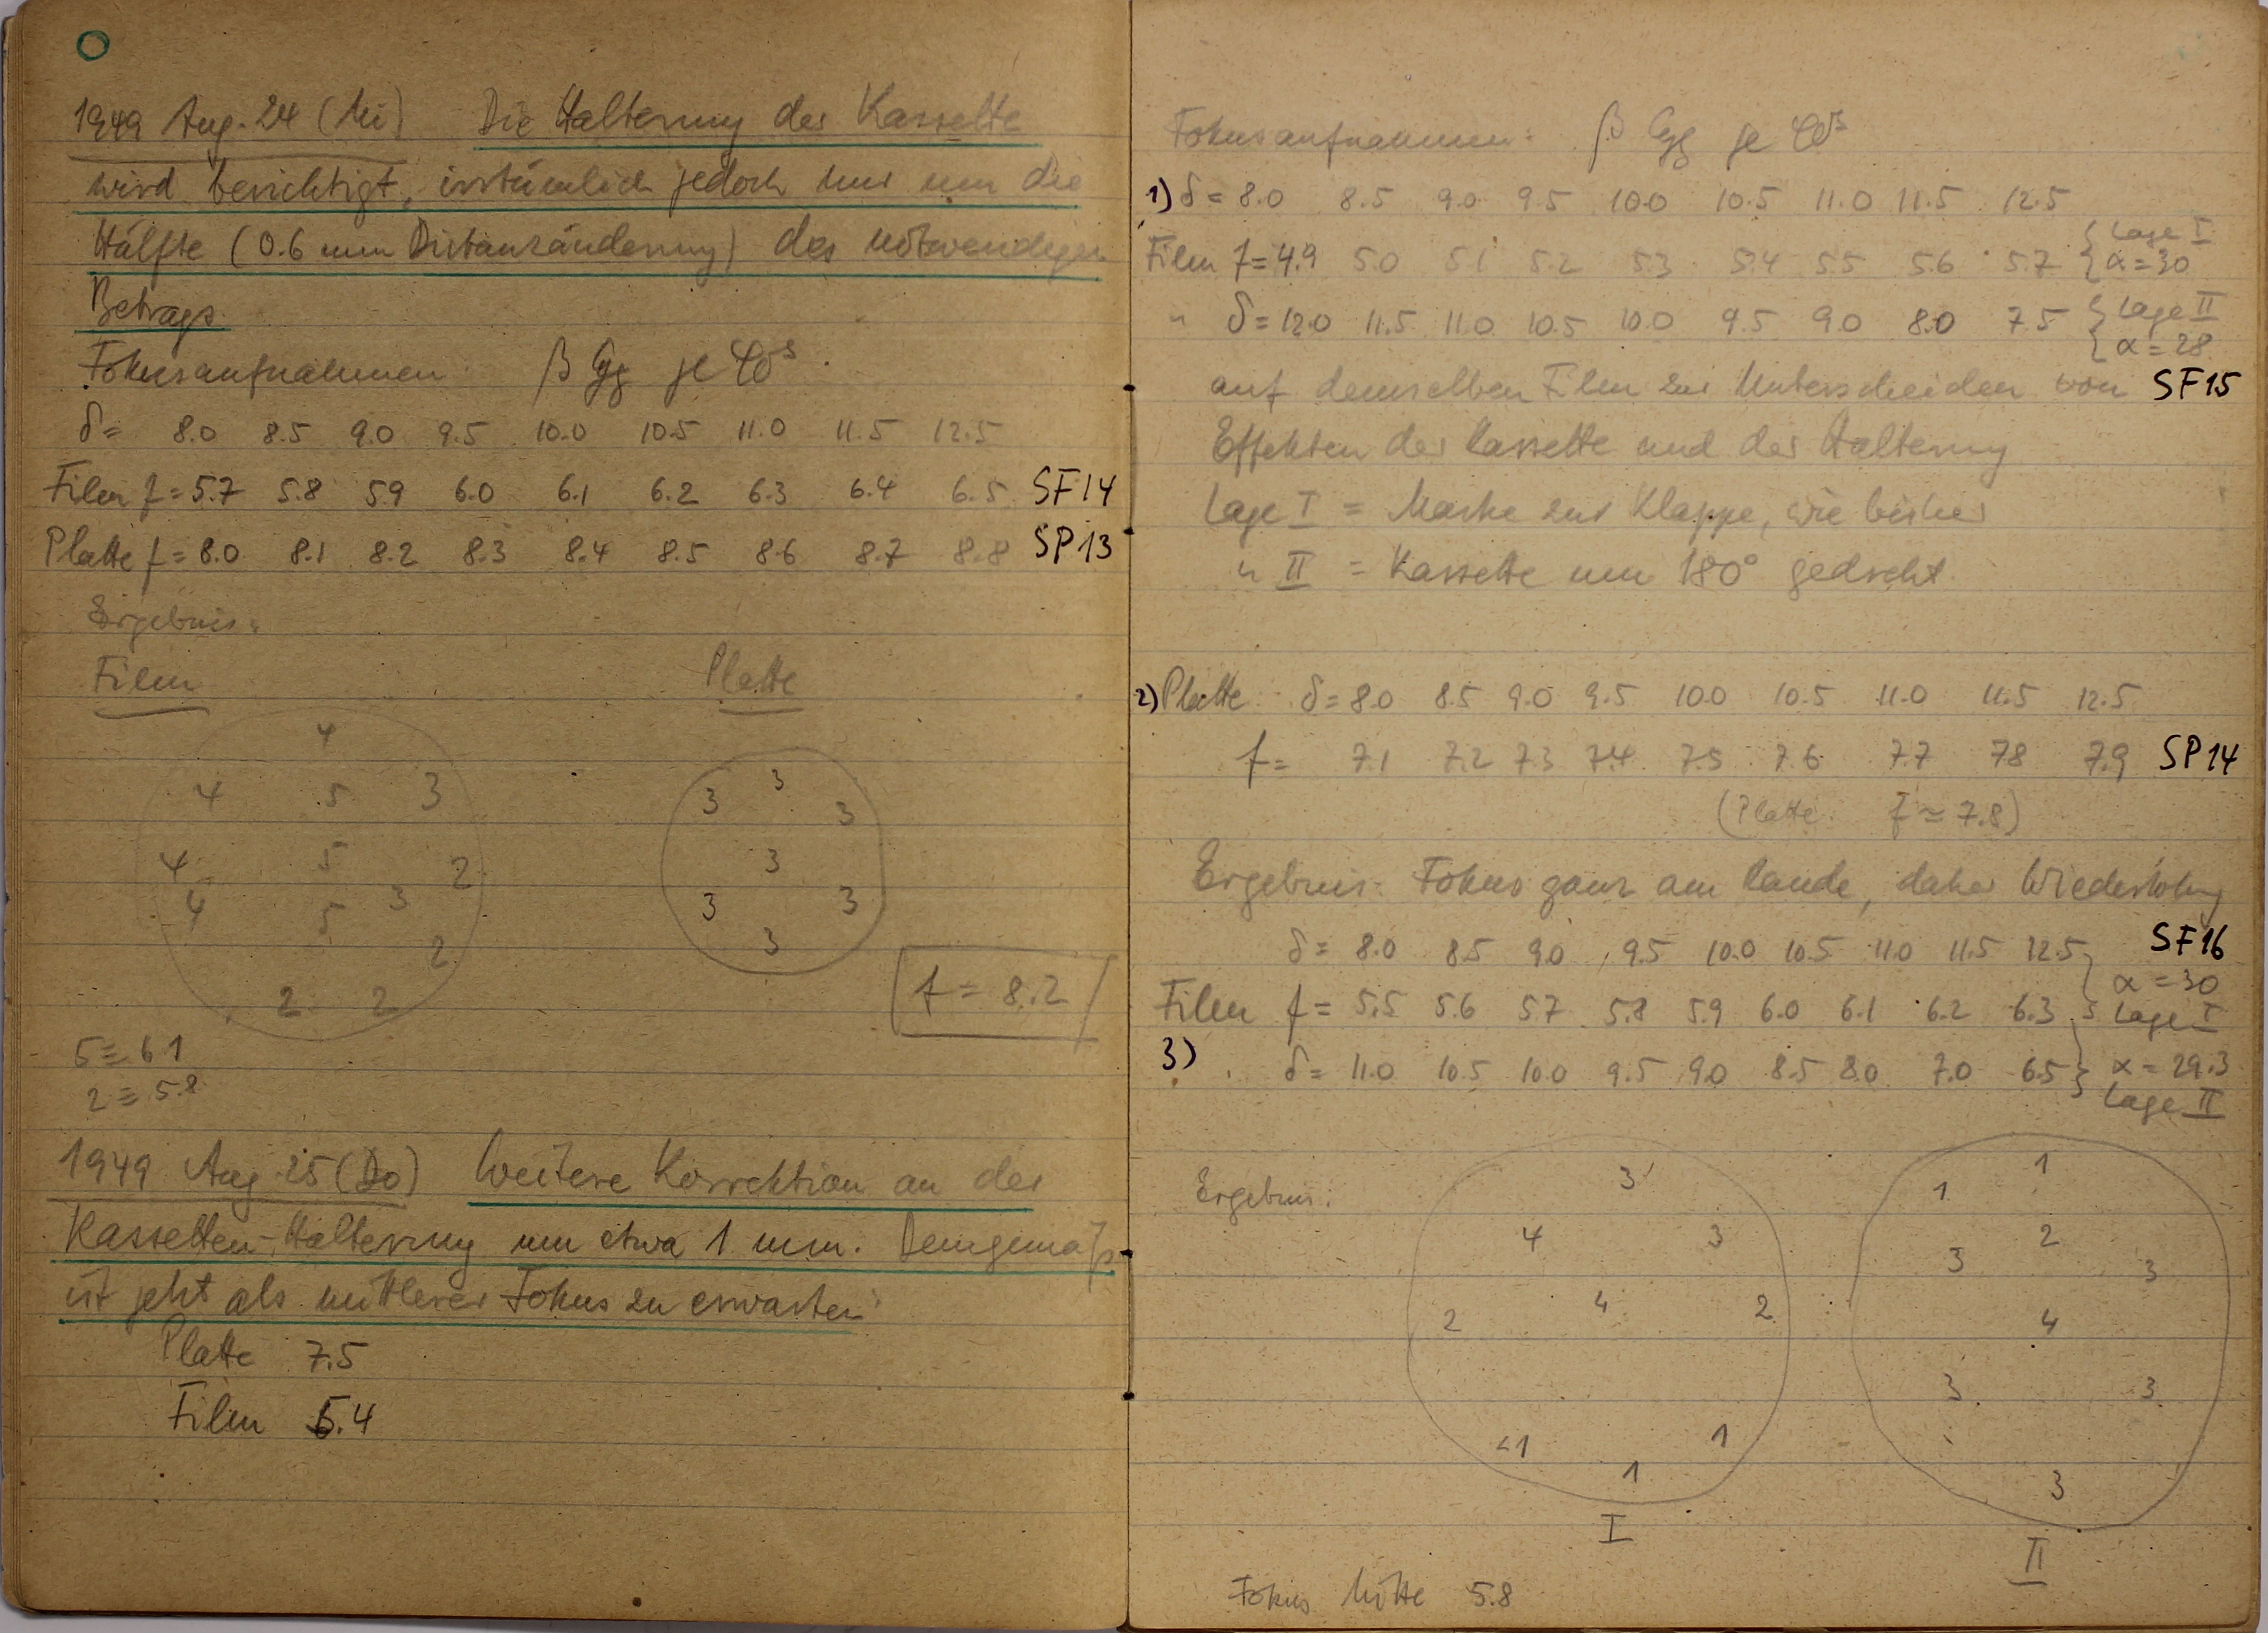 1949 Aug. 24 (Mi) Die Halterung der Kassette
wird berichtigt, irrtümlich jedoch nur um die
Hälfte (0.6 mm Distanzänderung) des notwendigen
Betrags.
Fokusaufnahmen β Cyg je 40ˢ.
δ = 8.0 8.5 9.0 9.5 10.0 10.5 11.0 11.5 12.5
Film f = 5.7 5.8 5.9 6.0 6.1 6.2 6.3 6.4 6.5 SF14
Platte f = 8.0 8.1 8.2 8.3 8.4 8.5 8.6 8.7 8.8 SP13
Ergebnis:
Film Platte
4
4 5 3
4 5 2
4 5 3
2
2 2
3
3 3
3
3 3
3
f = 8.2
5 ≡ 6.1
2 ≡ 5.8
1949 Aug. 25 (Do) Weitere Korrektion an der
Kassetten-Halterung um etwa 1 mm. Demgemäß
ist jetzt als mittlerer Fokus zu erwarten:
Platte 7.5
Film 5.4
Fokusaufnahmen: β Cyg je 40ˢ
1) δ = 8.0 8.5 9.0 9.5 10.0 10.5 11.0 11.5 12.5
Film f = 4.9 5.0 5.1 5.2 5.3 5.4 5.5 5.6 5.7 { Lage I α = 30
" δ = 12.0 11.5 11.0 10.5 10.0 9.5 9.0 8.0 7.5 { Lage II α = 28
auf demselben Film zur Unterscheiden von SF15
Effekten der Kassette und der Halterung
Lage I = Marke zur Klappe, wie bisher
" II = Kassette um 180° gedreht.
2) Platte δ = 8.0 8.5 9.0 9.5 10.0 10.5 11.0 11.5 12.5
f = 7.1 7.2 7.3 7.4 7.5 7.6 7.7 7.8 7.9 SP14
(Platte f ≈ 7.8)
Ergebnis: Fokus ganz am Rande, daher Wiederholung
δ = 8.0 8.5 9.0 9.5 10.0 10.5 11.0 11.5 12.5 SF16
Film f = 5.5 5.6 5.7 5.8 5.9 6.0 6.1 6.2 6.3 } α = 30 Lage I
3) δ = 11.0 10.5 10.0 9.5 9.0 8.5 8.0 7.0 6.5 } α = 29.3 Lage II
Ergebnis:
3
4 3
2 4 2
<1 1
1
I
1
1
2
3 3
4
3 3
3
II
Fokus Mitte 5.8